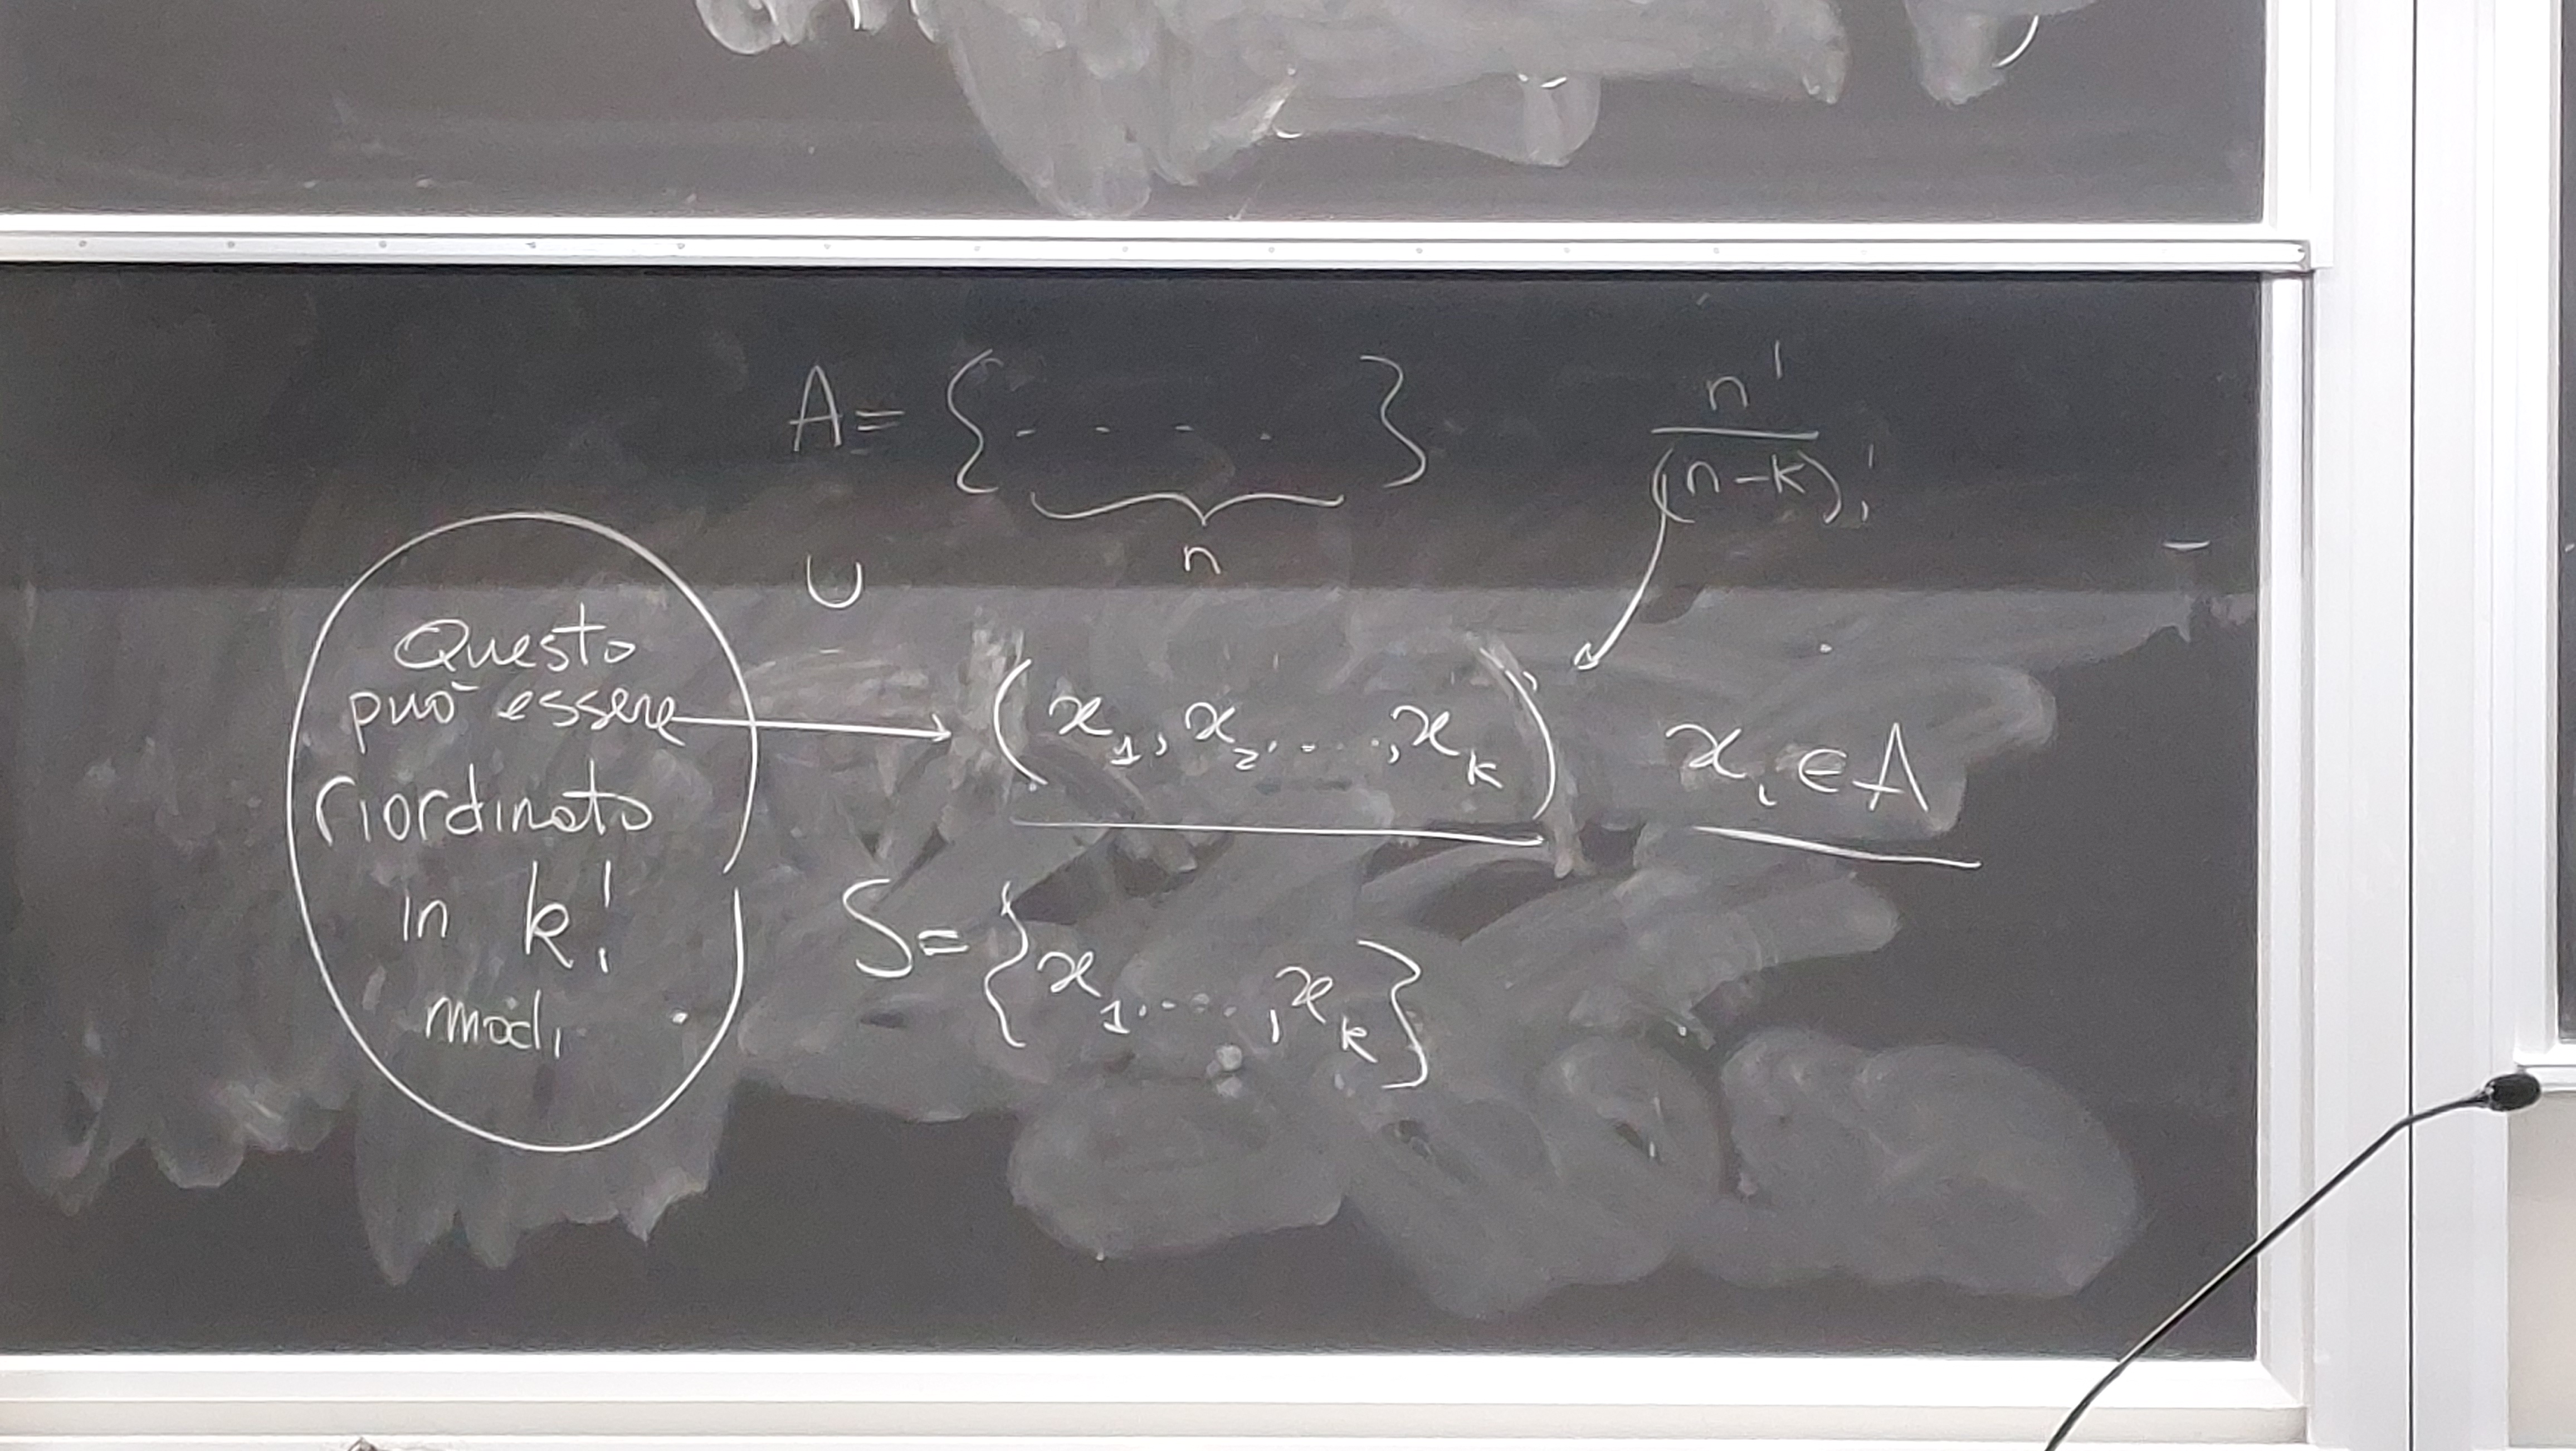 A = { . . . . }
n
n!
(n-k)!
∪
Questo
può essere
riordinato
in k!
modi
(x₁, x₂, ...., xₖ)
xᵢ ∈ A
S = {x₁, ...., xₖ}